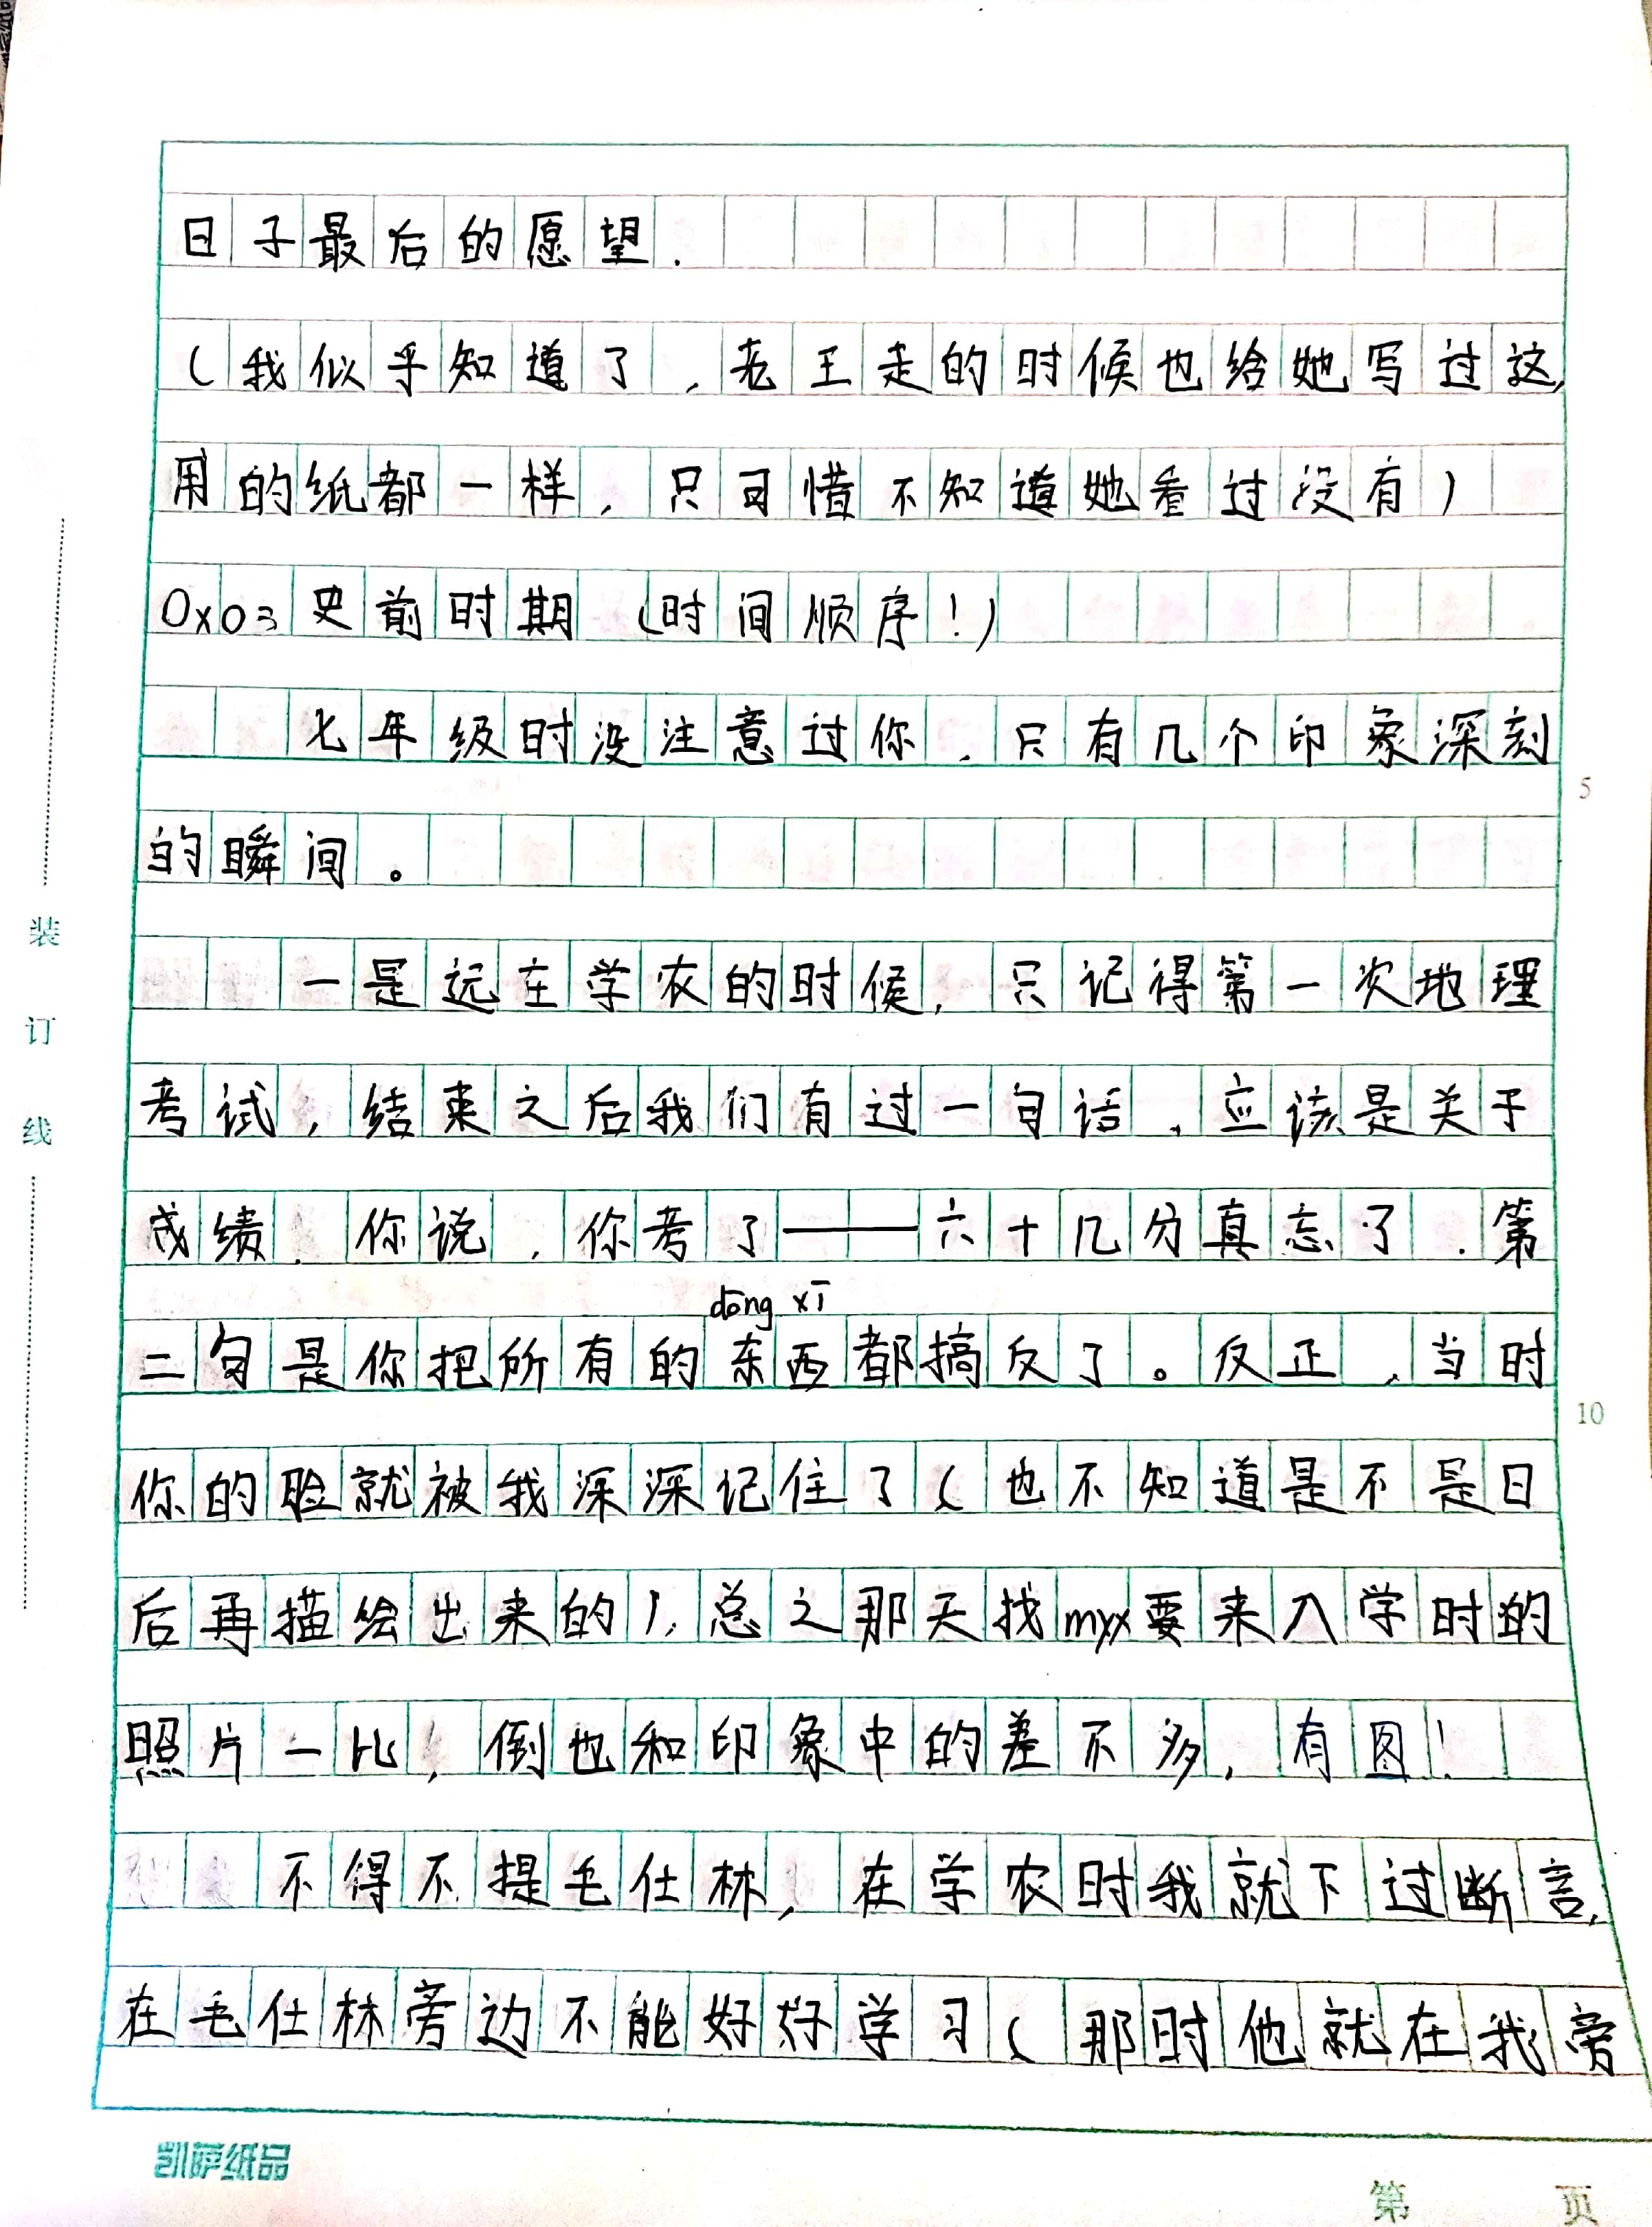 日子最后的愿望.
(我似乎知道了,老王走的时候也给她写过这,
用的纸都一样,只可惜不知道她看过没有)
0x03史前时期(时间顺序!)
七年级时没注意过你,只有几个印象深刻
5
的瞬间。
一是远在学农的时候,只记得第一次地理
考试,结束之后我们有过一句话,应该是关于
成绩.你说,你考了——六十几分真忘了.第
dōng xī
二句是你把所有的东西都搞反了。反正,当时
10
你的脸就被我深深记住了(也不知道是不是日
后再描绘出来的),总之那天找myx要来入学时的
照片一比,倒也和印象中的差不多,有图!
不得不提毛仕林,在学农时我就下过断言,
在毛仕林旁边不能好好学习(那时他就在我旁
装订线
凯萨纸品
第 页